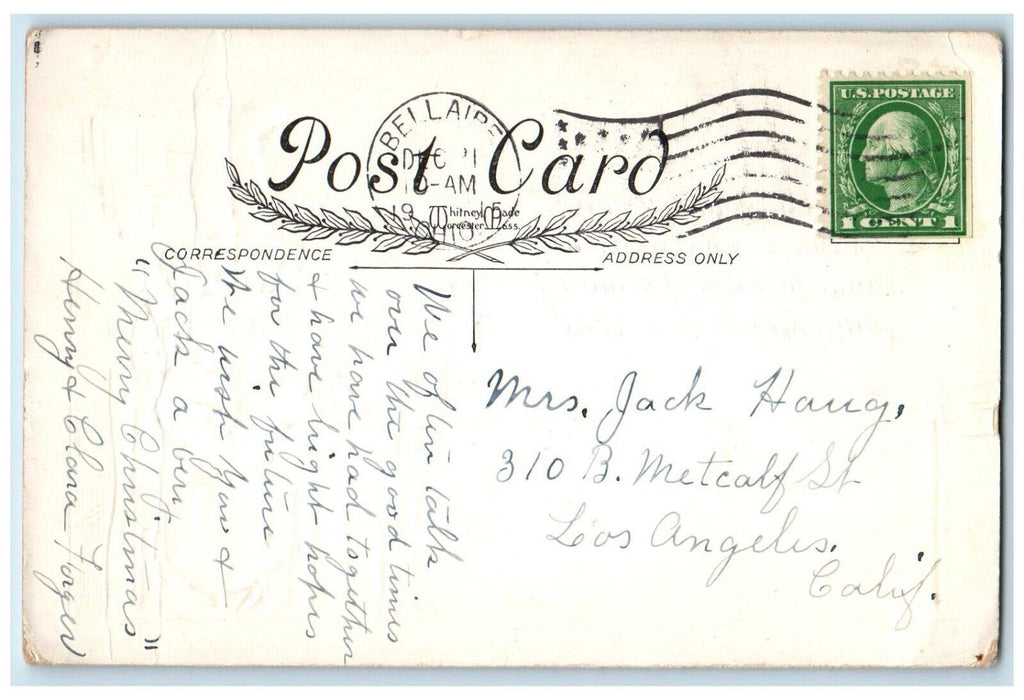 Post Card
BELLAIRE
DEC 21
10-AM
1915
Whitney Made
Worcester Mass.
U.S. POSTAGE
1 CENT 1
CORRESPONDENCE
ADDRESS ONLY
We often talk
over the good times
we have had together
& have hight hopes
for the future
We wish you &
Jack a very
"Merry Christmas"
Henry & Clara Forger
Mrs. Jack Haug,
310 B. Metcalf St
Los Angeles.
Calif.